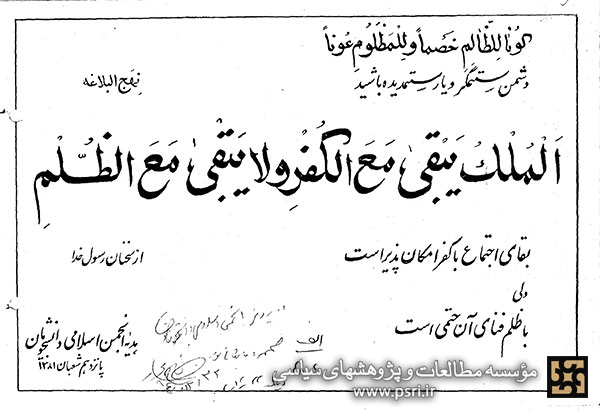 کونا للظالم خصماً و للمظلوم عوناً
دشمن ستمگر و یار ستمدیده باشید
نهج البلاغه
اَلْمُلْكُ يَبْقىٰ مَعَ الكُفْرِ و لا يَبْقىٰ مَعَ الظُّلْمِ
بقای اجتماع با کفر امکان پذیر است
از سخنان رسول خدا
ولی
با ظلم فنای آن حتمی است
هدیه انجمن اسلامی دانشجویان
پانزدهم شعبان ۱۳۸۱
الف
مؤسسه مطالعات و پژوهشهای سیاسی
www.psri.ir